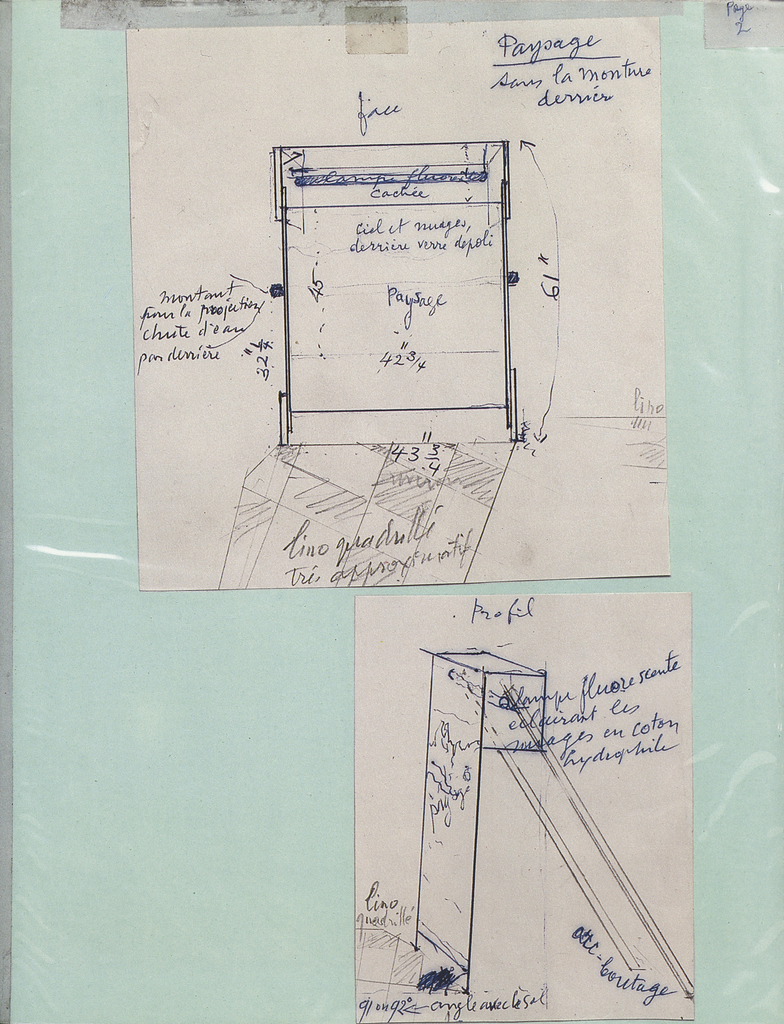 Page
2
Paysage
sans la monture
derrière
face
lampe fluores
cachée
ciel et nuages,
derrière verre dépoli
61"
45
montant
pour la projection
chute d'eau
par derrière
Paysage
32 1/4"
42 3/4"
43 3/4"
lino
lino quadrillé
très approximatif
Profil
lampe fluorescente
éclairant les
nuages en coton
hydrophile
paysage
lino
quadrillé
arc-boutage
91 ou 92° ← angle avec le sol